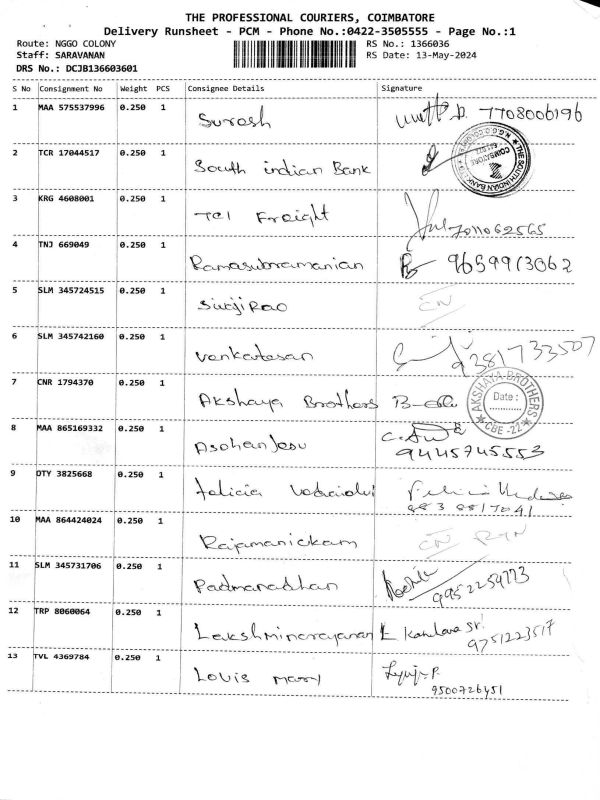 THE PROFESSIONAL COURIERS, COIMBATORE
Delivery Runsheet - PCM - Phone No.:0422-3505555 - Page No.:1
Route: NGGO COLONY RS No.: 1366036
Staff: SARAVANAN RS Date: 13-May-2024
DRS No.: DCJB136603601
S No Consignment No Weight PCS Consignee Details Signature
1 MAA 575537996 0.250 1 Suresh 7708006196
2 TCR 17044517 0.250 1 South indian Bank THE SOUTH INDIAN BANK COIMBATORE
3 KRG 4608001 0.250 1 TCI Freight 7011062565
4 TNJ 669049 0.250 1 Ramasubramanian 9659913062
5 SLM 345724515 0.250 1 SivajiRao CN
6 SLM 345742160 0.250 1 Venkatesan 9381733507
7 CNR 1794370 0.250 1 Akshaya Brothers AKSHAYA BROTHERS Date: CBE - 22
8 MAA 865169332 0.250 1 AsohanJesu 9445745553
9 OTY 3825668 0.250 1 felicia
10 MAA 864424024 0.250 1 Rajamanickam CN RTN
11 SLM 345731706 0.250 1 Padmanadhan 9952254773
12 TRP 8060064 0.250 1 Lakshminarayanan 9751223517
13 TVL 4369784 0.250 1 Louis mary 9500726451